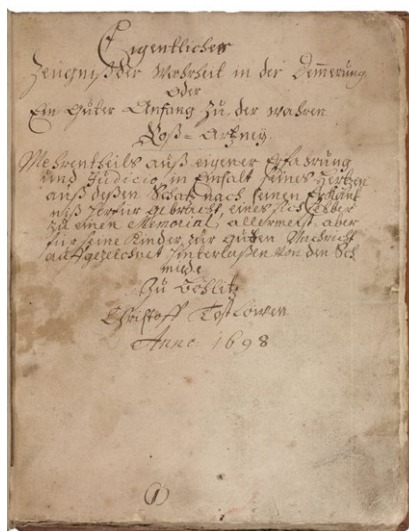 Eigentliches
Zeugniß der Warheit in der Demerung
oder
Ein Guter Anfang Zu der wahren
Roß=Artzney.
Mehrentheils auß eigener Erfahrung
und Judicio, in Einfalt seines Hertzen
auß deßen Schatz nach seinen
herfür gebracht,
zu einen Memorial, allermeist, aber
für seine Kinder, zur guten Nachricht
auffgezeichnet hinterlaßen von den Sch
miede
Zu Böhlitz
Christoff
Anno 1698
(1)